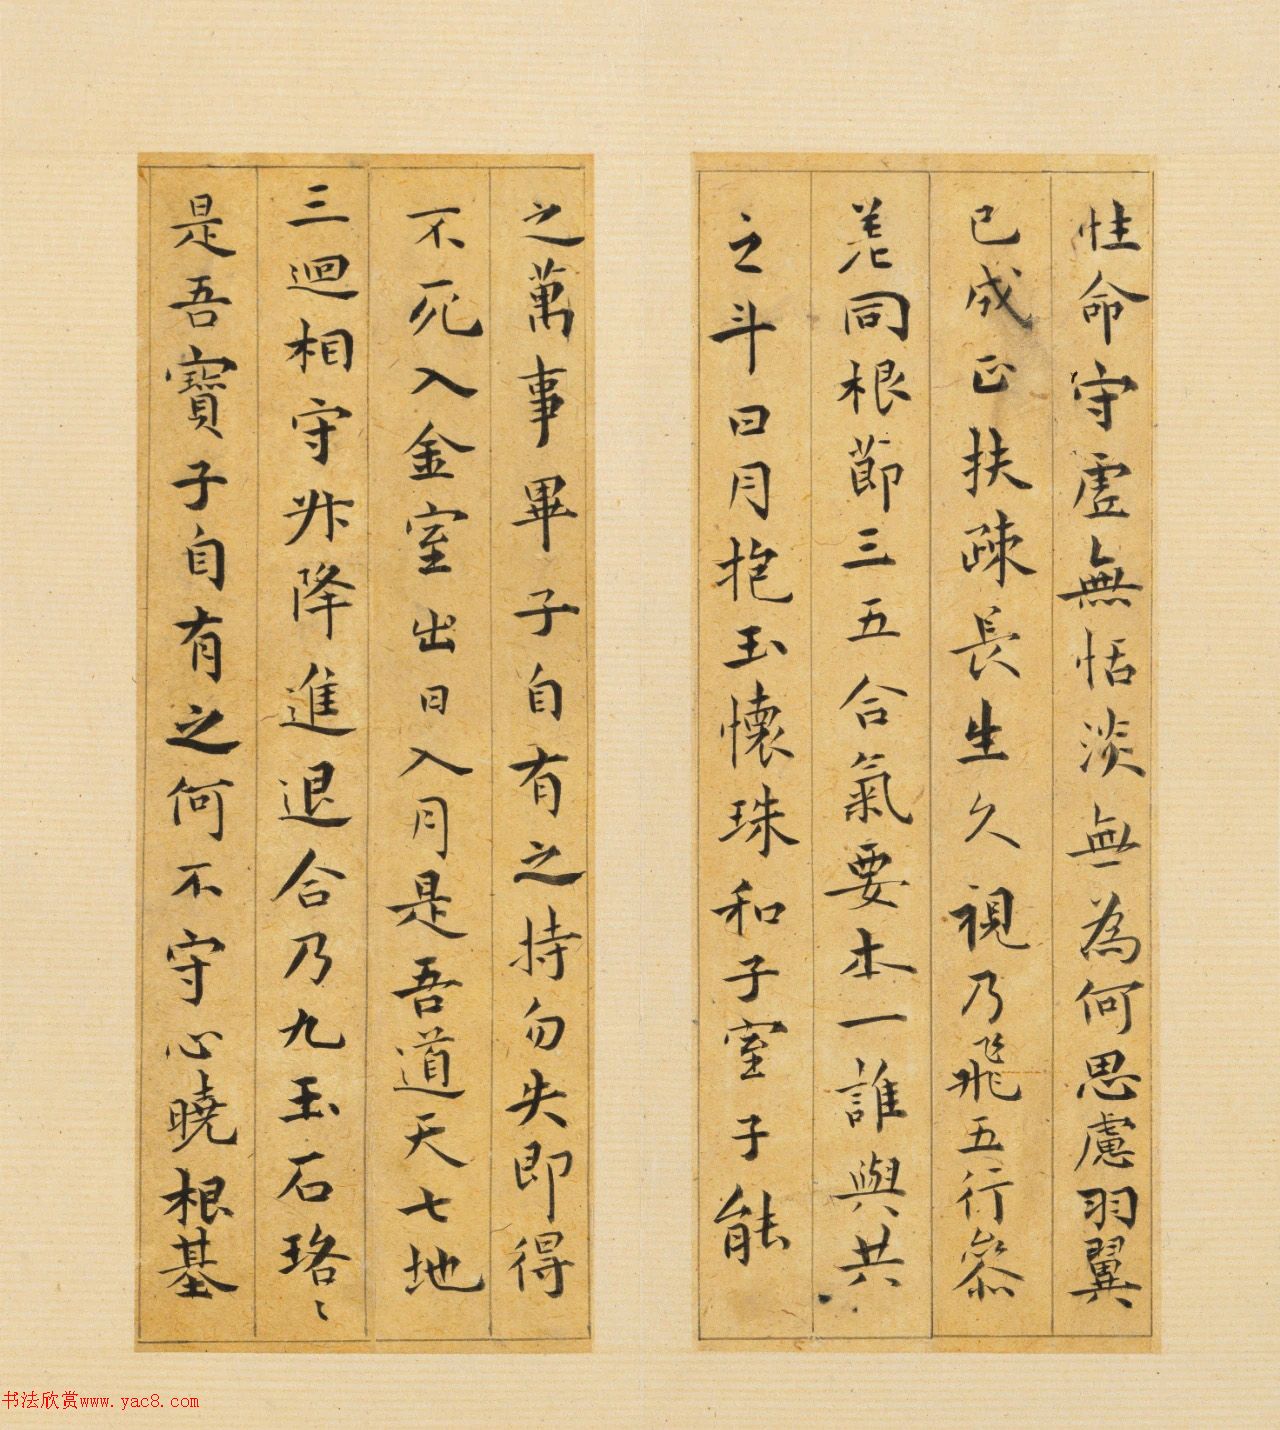 性命守虛無恬淡無為何思慮羽翼
已成正扶疎長生久視乃飛五行參
差同根節三五合氣要本一誰與共
之斗日月抱玉懷珠和子室子能
之萬事畢子自有之持勿失即得
不死入金室出日入月是吾道天七地
三迴相守升降進退合乃九玉石珞〻
是吾寶子自有之何不守心曉根基
书法欣赏www.yac8.com